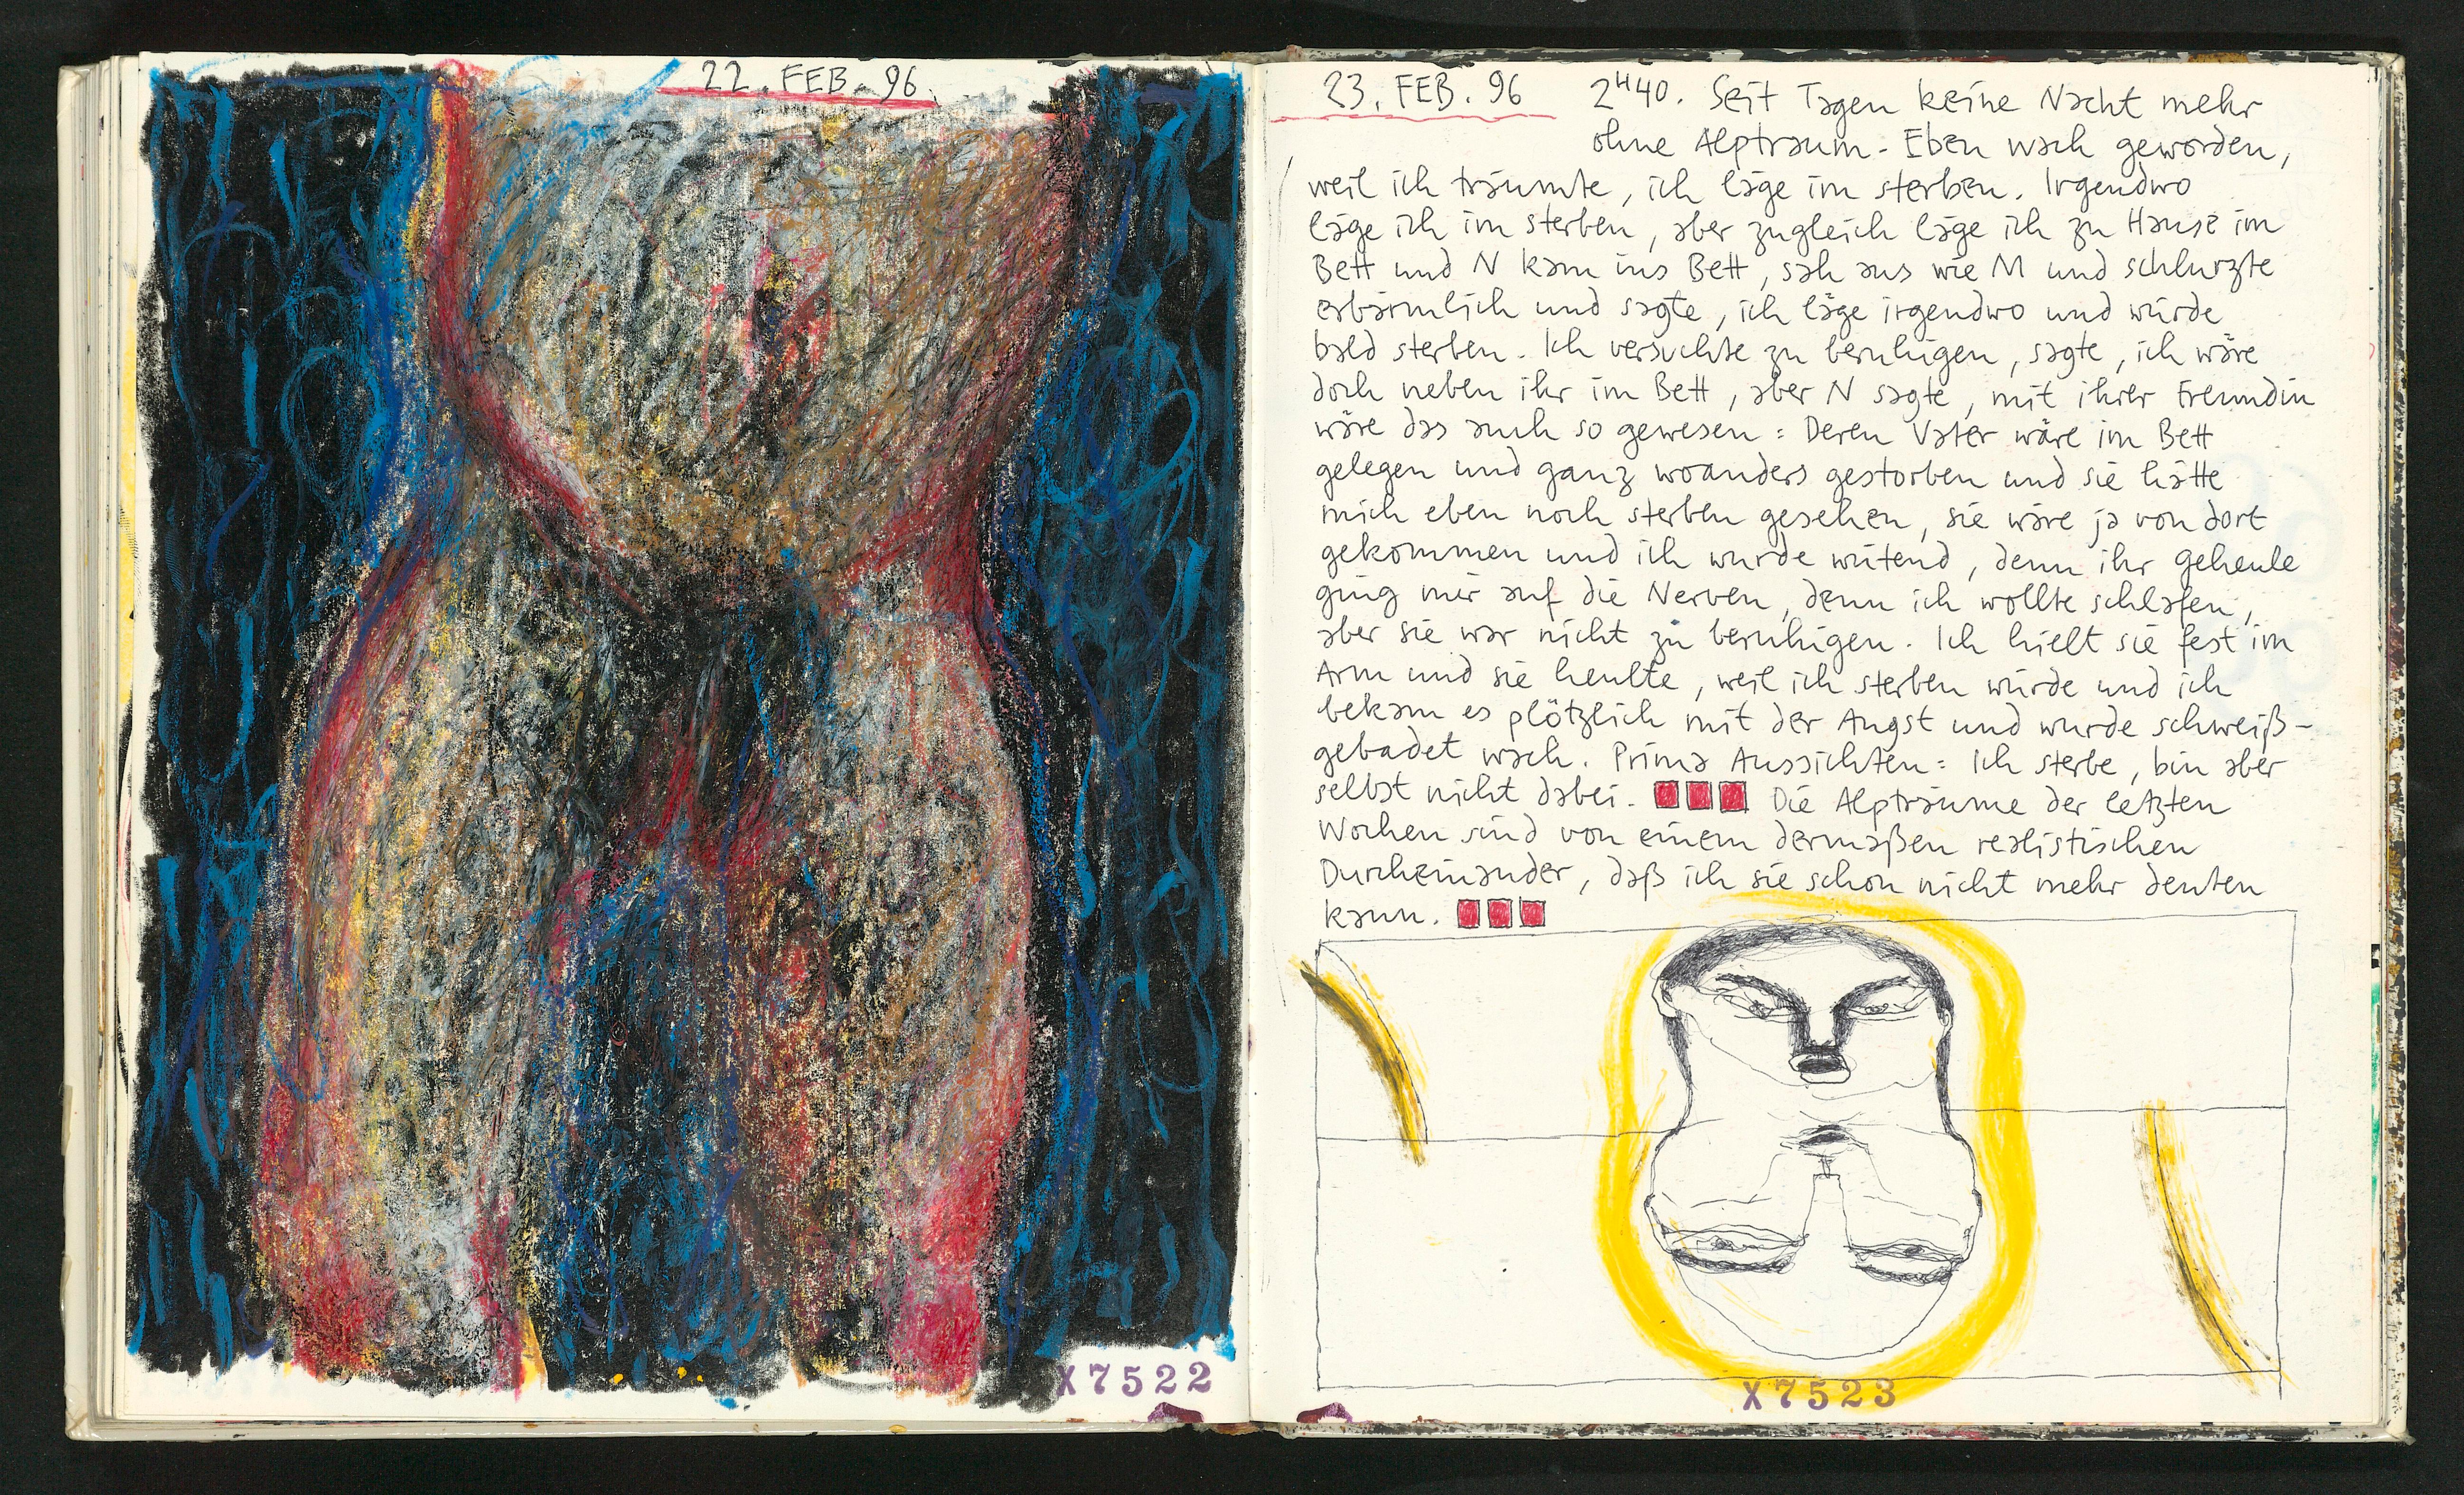 22. FEB. 96
X7522
23. FEB. 96 2H40. Seit Tagen keine Nacht mehr
ohne Alptraum. Eben wach geworden,
weil ich träumte, ich läge im sterben. Irgendwo
läge ich im sterben, aber zugleich läge ich zu Hause im
Bett und N kam ins Bett, sah aus wie M und schlurzte
erbärmlich und sagte, ich läge irgendwo und würde
bald sterben. Ich versuchte zu beruhigen, sagte, ich wäre
doch neben ihr im Bett, aber N sagte, mit ihrer Freundin
wäre das auch so gewesen: Deren Vater wäre im Bett
gelegen und ganz woanders gestorben und sie hätte
mich eben noch sterben gesehen, sie wäre ja von dort
gekommen und ich wurde wütend, denn ihr Geheule
ging mir auf die Nerven, denn ich wollte schlafen,
aber sie war nicht zu beruhigen. Ich hielt sie fest im
Arm und sie heulte, weil ich sterben würde und ich
bekam es plötzlich mit der Angst und wurde schweiß-
gebadet wach. Prima Aussichten: Ich sterbe, bin aber
selbst nicht dabei. Die Alpträume der letzten
Wochen sind von einem dermaßen realistischen
Durcheinander, daß ich sie schon nicht mehr deuten
kann.
X7523